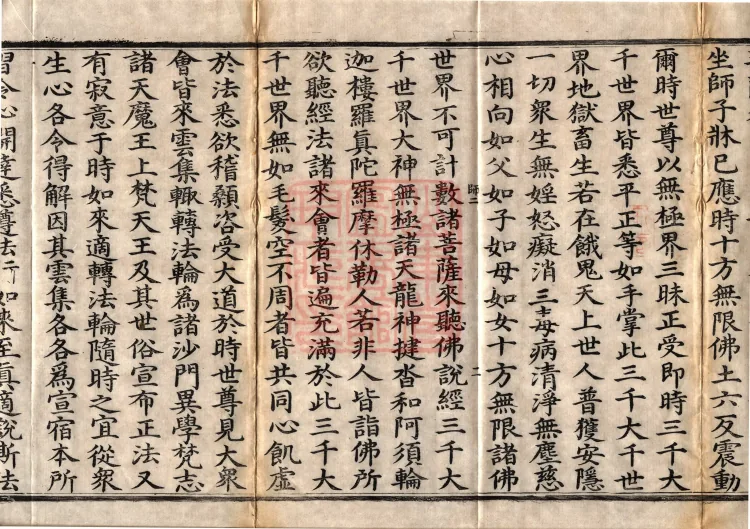 坐師子牀已應時十方無限佛土六反震動
爾時世尊以無極界三昧正受即時三千大
千世界皆悉平正等如手掌此三千大千世
界地獄畜生若在餓鬼天上世人普獲安隱
一切衆生無婬怒癡消三毒病清淨無塵慈
心相向如父如子如母如女十方無限諸佛
師二 二
世界不可計數諸菩薩來聽佛說經三千大
千世界大神無極諸天龍神揵沓和阿須輪
迦樓羅真陀羅摩休勒人若非人皆詣佛所
欲聽經法諸來會者皆遍充滿於此三千大
千世界無如毛髮空不周者皆共同心飢虛
於法悉欲稽顙咨受大道於時世尊見大衆
會皆來雲集輙轉法輪爲諸沙門異學梵志
諸天魔王上梵天王及其世俗宣布正法又
有寂意于時如來適轉法輪隨時之宜從衆
生心各令得解因其雲集各各爲宣宿本所
習令心開達悉尊法言如來至真適說斯法